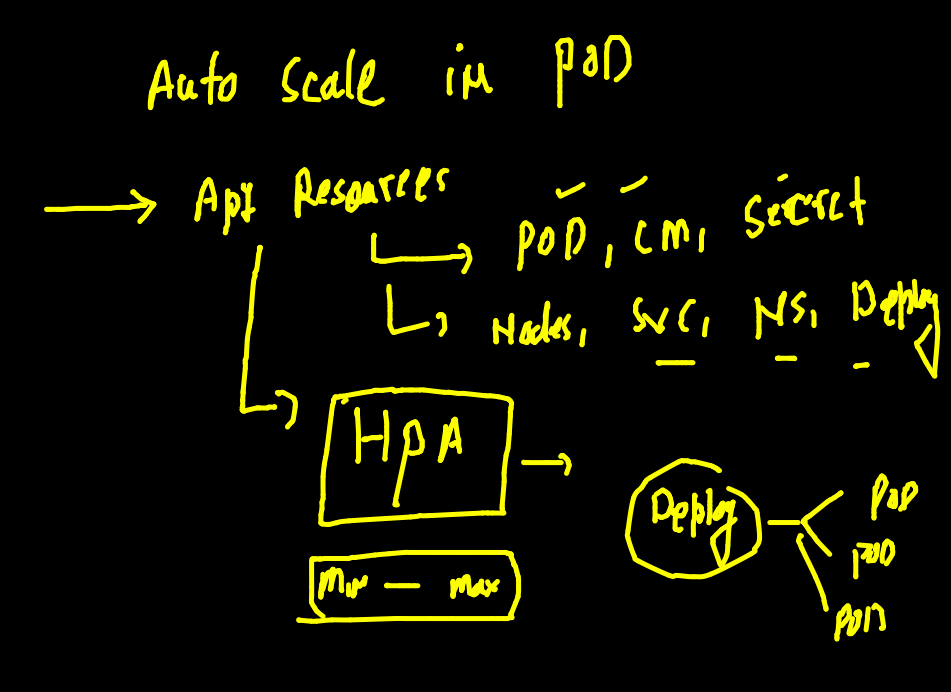 Auto Scale in POD
Api Resources
POD, CM, Secret
Nodes, SVC, NS, Deploy
HPA
Deploy
POD
POD
POD
Min — Max